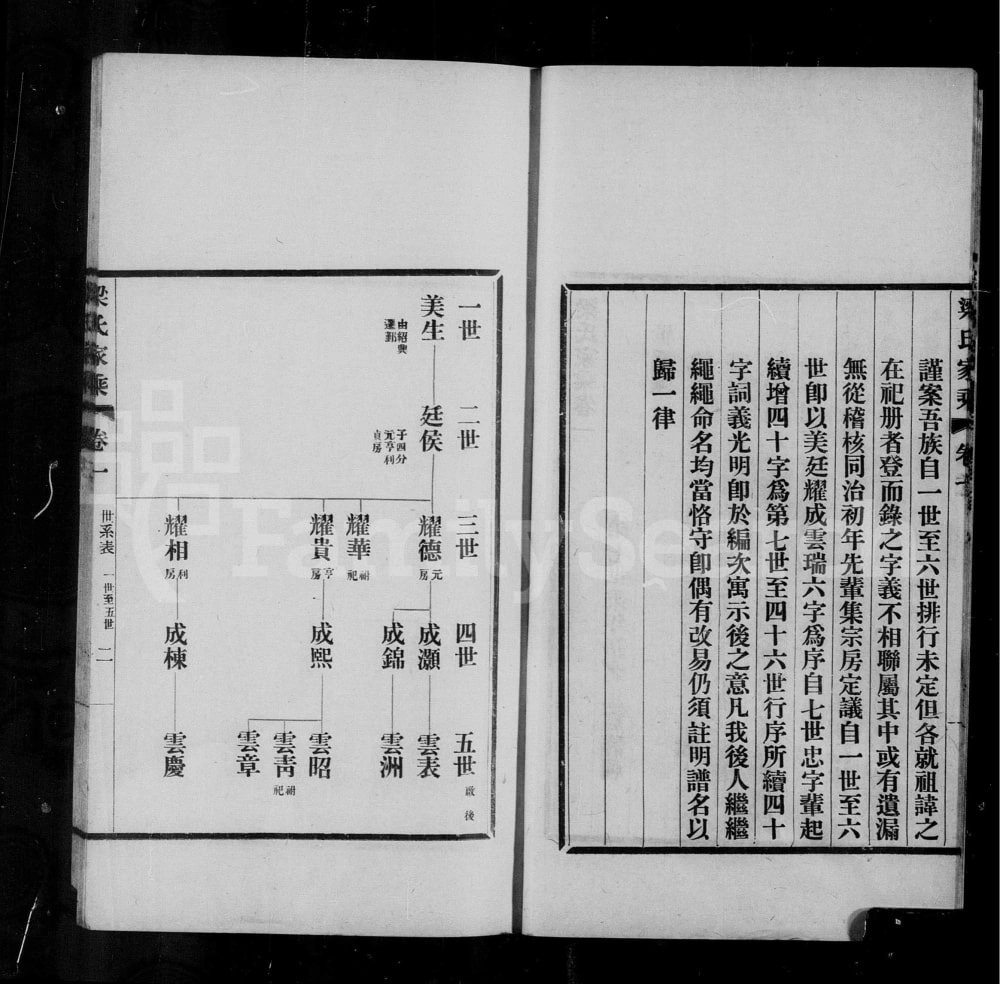 梁氏家乘 卷一
謹案吾族自一世至六世排行未定但各就祖諱之
在祀册者登而錄之字義不相聯屬其中或有遺漏
無從稽核同治初年先輩集宗房定議自一世至六
世卽以美廷耀成雲瑞六字爲序自七世忠字輩起
續增四十字爲第七世至四十六世行序所續四十
字詞義光明卽於編次寓示後之意凡我後人繼繼
繩繩命名均當恪守卽偶有改易仍須註明譜名以
歸一律
一世 二世 三世 四世 五世 啟後
美生 由紹興遷鄞
廷侯 子四分元亨利貞房
耀德 元房
成灝 雲表
成錦 雲洲
耀華 祔祀
耀貴 亨房
成熙 雲昭
雲靑 祔祀
雲章
耀相 利房
成棟 雲慶
梁氏家乘 卷一 世系表 一世至五世 二
FamilySe